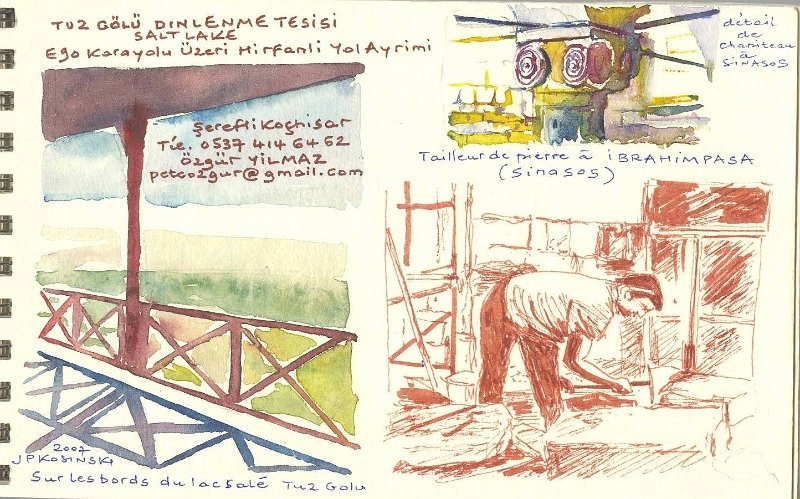 TUZ GÖLÜ DINLENME TESISI
SALT LAKE
Ego Karayolu Üzeri Hirfanli Yol Ayrimi
Şerefli Koçhisar
Tie. 0537 414 64 62
Özgür YILMAZ
peteozgur@gmail.com
2007
JPKOSINSKI
Sur les bords du lac salé TUZ Golu
détail
de
chapiteau
à
SINASOS
Tailleur de pierre à IBRAHIMPASA
(Sinasos)